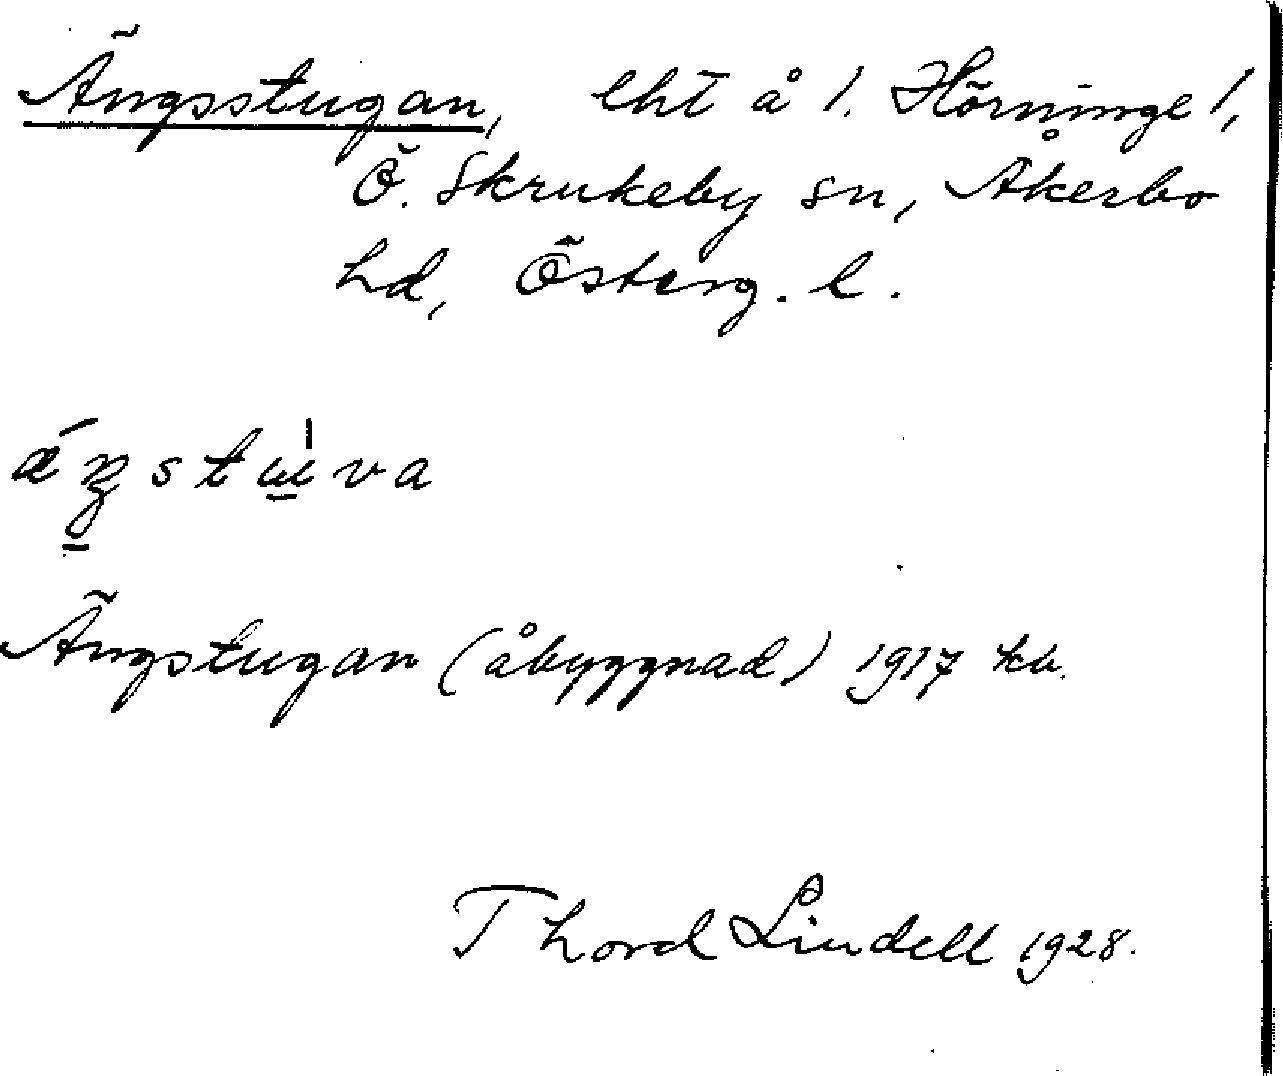 Ängsstugan, lht å 1. Hörninge 1,
Ö. Skrukeby sn, Åkerbo
hd, Österg. l.
Ängstugan (åbyggnad) 1917 kb.
Thord Lindell 1928.